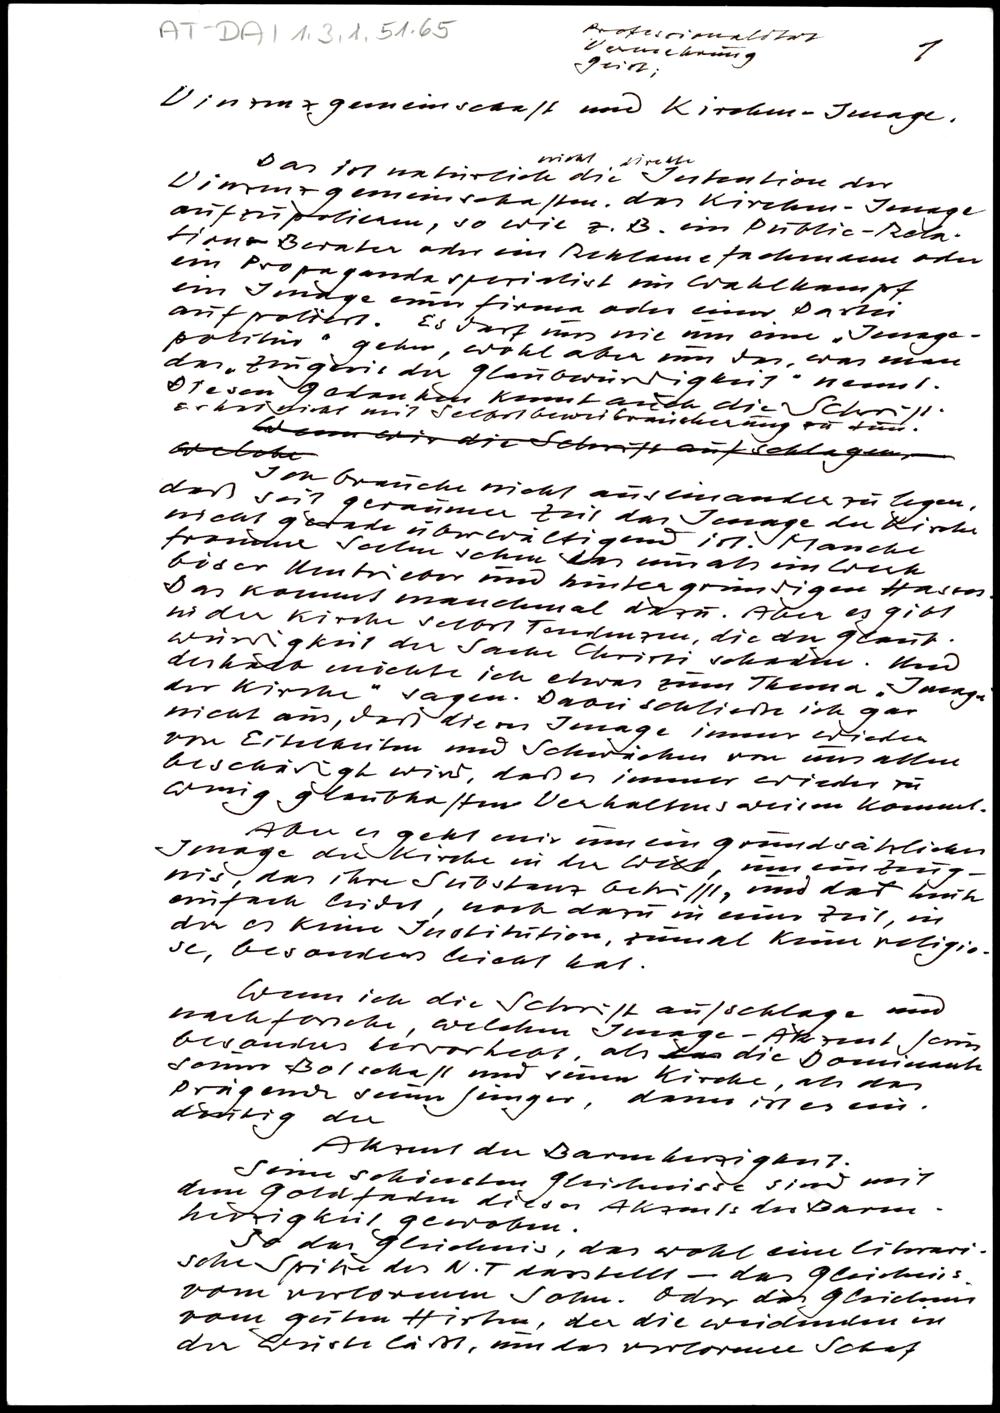 AT-DAI 1.3.1.51.65
Professionalität
Vermehrung
Geist;
1
Vinzenzgemeinschaft und Kirchen-Image.
nicht direkte
Das ist natürlich die Intention der
Vinzenzgemeinschaften. das Kirchen-Image
aufzupolieren, so wie z. B. ein Public-Rela-
tions-Berater oder ein Reklamefachmann oder
ein Propagandaspezialist im Wahlkampf
ein Image einer Firma oder einer Partei
aufpoliert. Es darf uns nie um eine "Image-
politur" gehen, wohl aber um das, was man
das "Zeugnis der Glaubwürdigkeit" nennt.
Diesen Gedanken kennt auch die Schrift.
Er hat nicht mit Selbstbeweihräucherung zu tun.
Wenn wir die Schrift aufschlagen,
welche
Ich brauche nicht auseinander zu legen,
daß seit geraumer Zeit das Image der Kirche
nicht gerade überwältigend ist. Manche
fromme Seelen sehen das nun als ein Werk
böser Umtriebe und hintergründigen Hasses.
Das kommt manchmal dazu. Aber es gibt
in der Kirche selbst Tendenzen, die der Glaub-
würdigkeit der Sache Christi schaden. Und
deshalb möchte ich etwas zum Thema "Image
der Kirche" sagen. Dabei schließe ich gar
nicht aus, daß dieses Image immer wieder
von Eitelkeiten und Schwächen von uns allen
beschädigt wird, daß es immer wieder zu
wenig glaubhaften Verhaltensweisen kommt.
Aber es geht mir um ein grundsätzliches
Image der Kirche in der Welt, um ein Zeug-
nis, das ihre Substanz betrifft, und das heute
einfach leidet, noch dazu in einer Zeit, in
der es keine Institution, zumal keine religiö-
se, besonders leicht hat.
Wenn ich die Schrift aufschlage und
nachforsche, welchen Image-Akzent Jesus
besonders hervorhebt, als das die Dominante
seiner Botschaft und seiner Kirche, als das
Prägende seiner Jünger, dann ist es ein-
deutig der
Akzent der Barmherzigkeit.
Seine schönsten Gleichnisse sind mit
dem Goldfaden dieses Akzents der Barm-
herzigkeit gewoben.
So das Gleichnis, das wohl eine literari-
sche Spitze des N.T darstellt – das Gleichnis
vom verlorenen Sohn. Oder das Gleichnis
vom guten Hirten, der die weidenden in
der Wüste läßt, um das verlorene Schaf